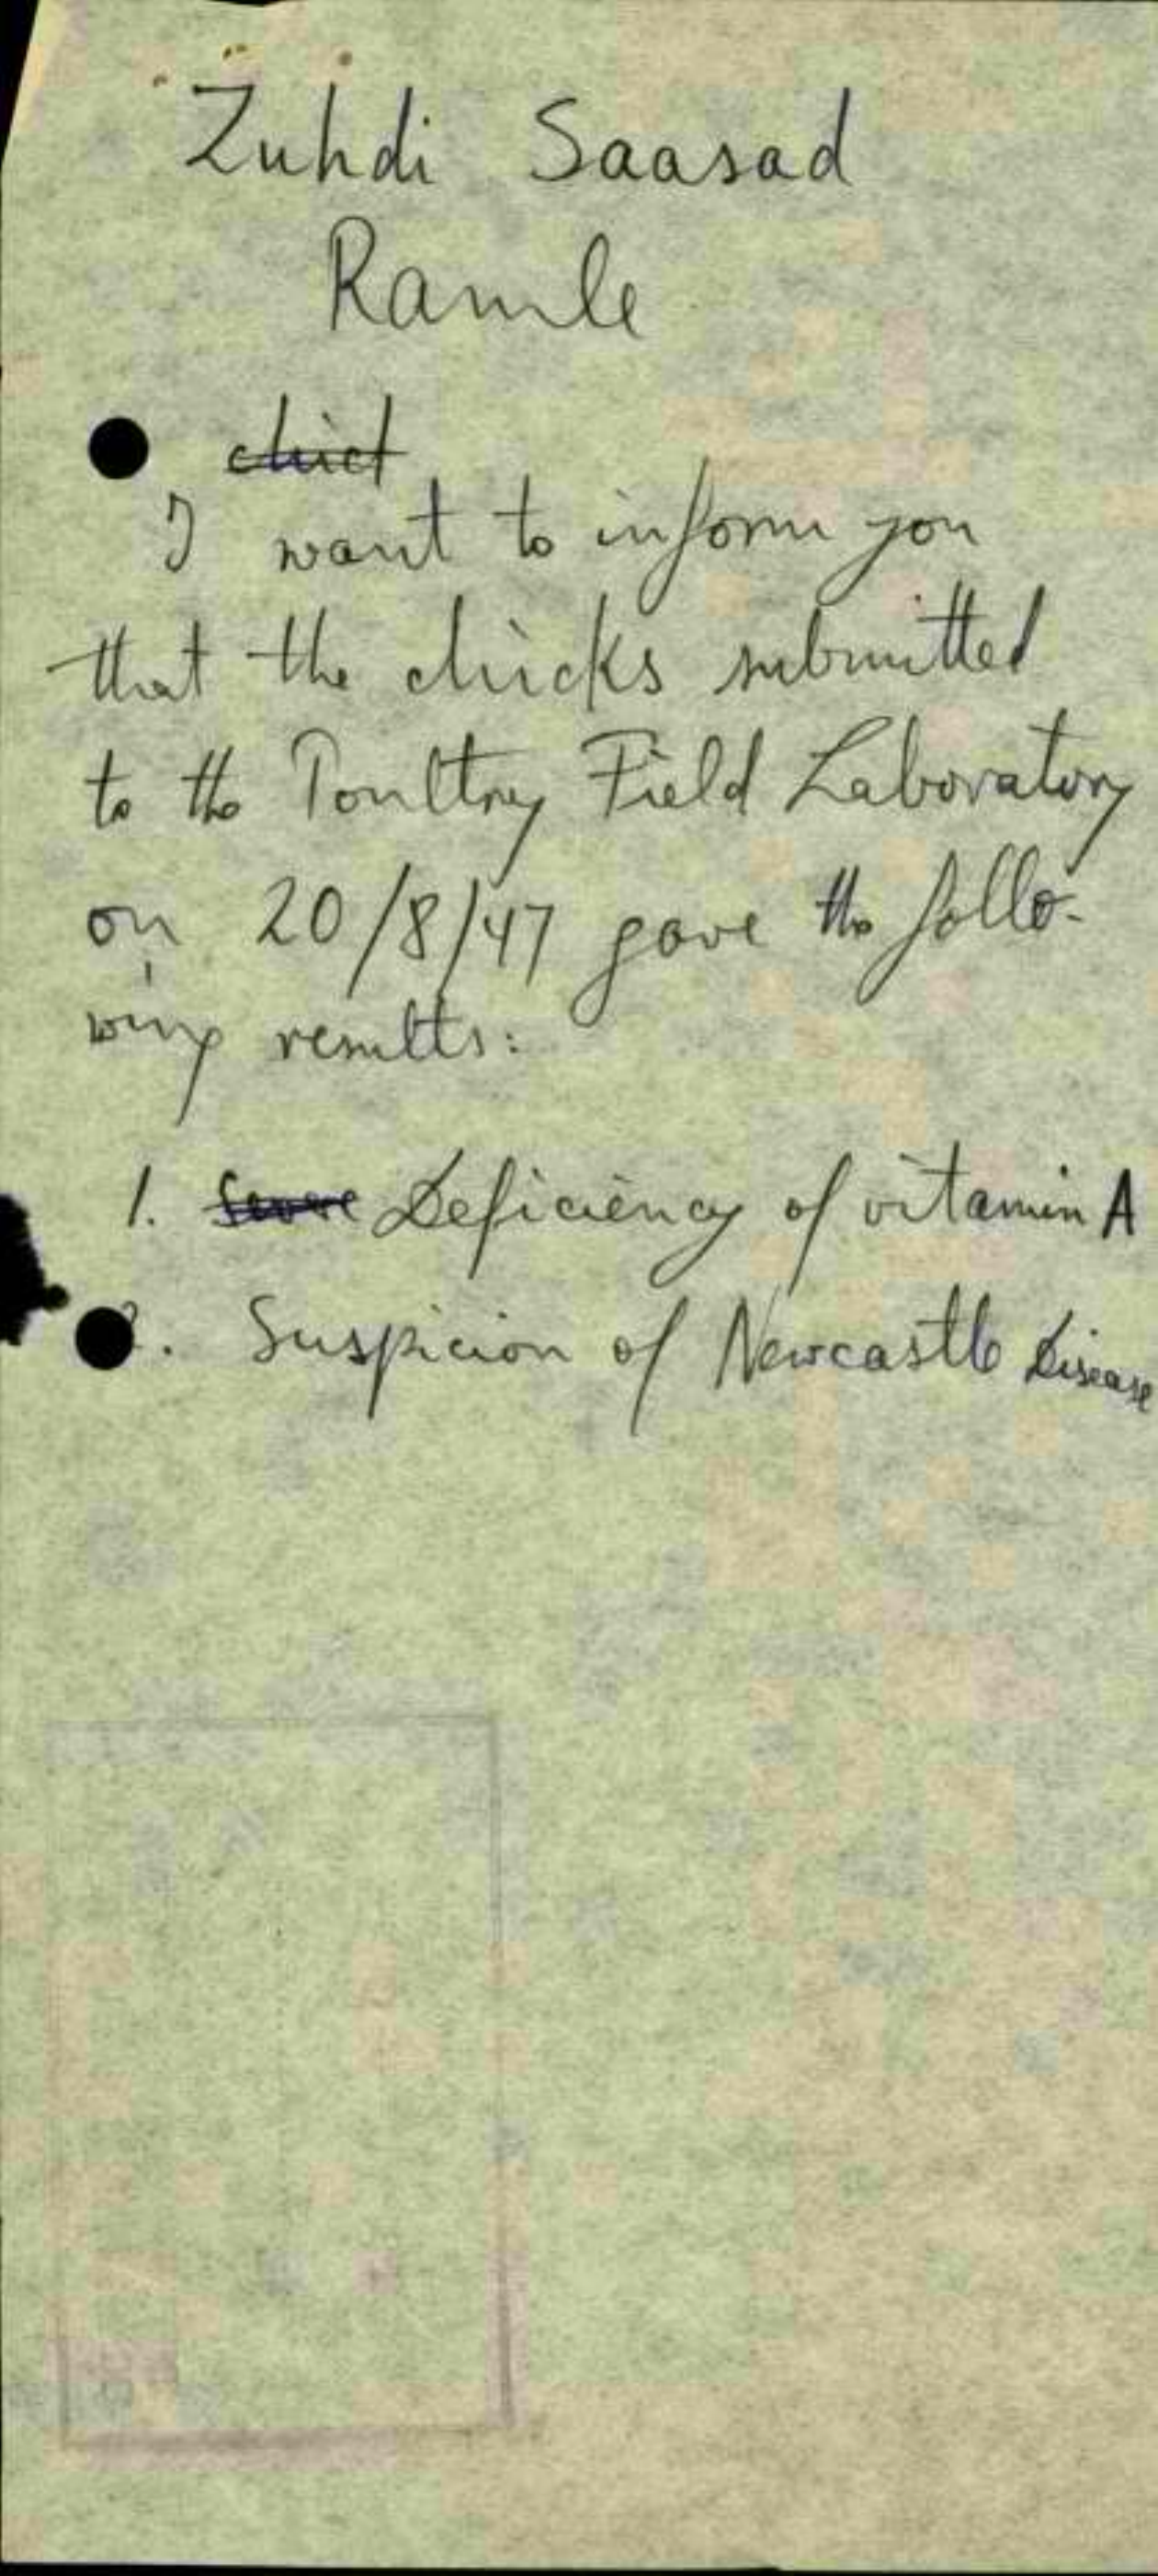 Zuhdi Saasad
Ramle
I want to inform you
that the chicks submitted
to the Poultry Field Laboratory
on 20/8/47 gave the follo-
wing results:
1. Severe Deficiency of vitamin A
2. Suspicion of Newcastle Disease